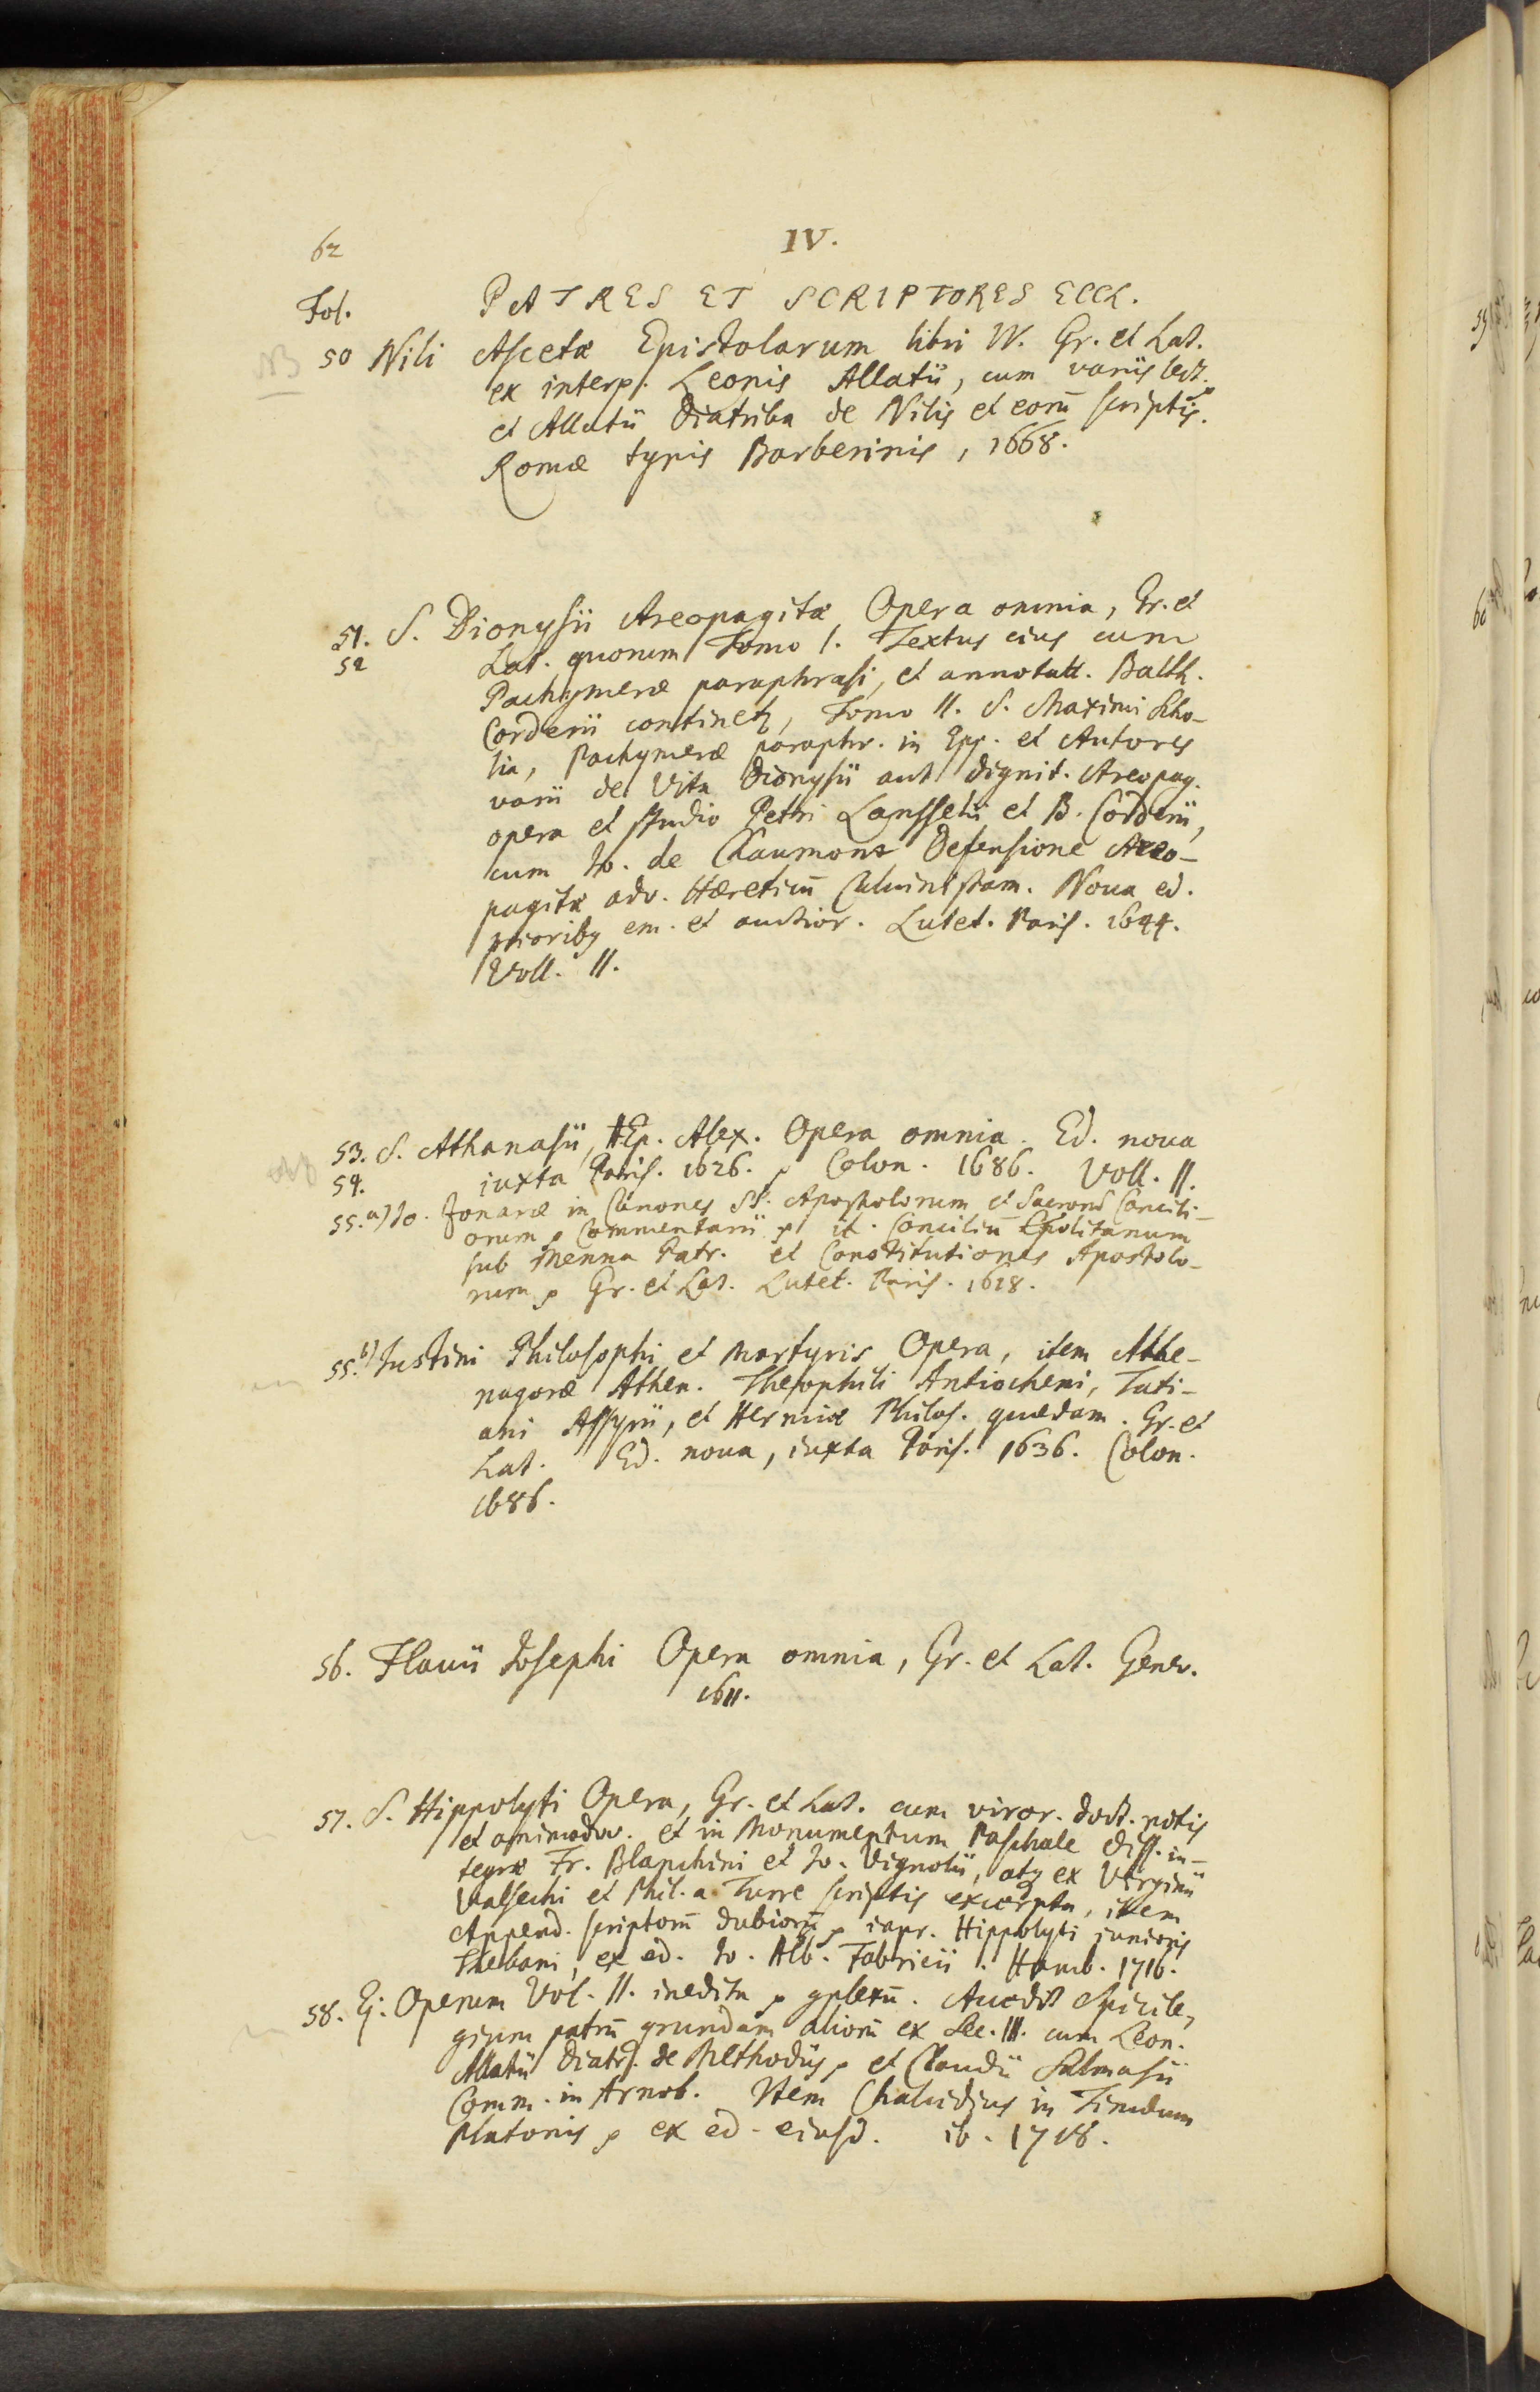 62
IV.
Fol. PATRES ET SCRIPTORES ECCL.
NB
50 Nili Ascetæ Epistolarum libri IV. Gr. et Lat.
ex interpr. Leonis Allatii, cum variis lect.
et Allatii Diatriba de Nilis et eorū scriptis.
Romæ typis Barberinis, 1668.
51. S. Dionysii Areopagitæ Opera omnia, Gr. et
52 Lat. quorum Tomo I. Textus eius cum
Pachymeræ paraphrasi, et annotatt. Balth.
Corderii continetr, Tomo II. S. Maximi Scho-
lia, Pachymeræ paraphr. in Epp. et Autores
varii de Vita Dionysii aut dignit. Areopag.
opera et studio Petri Lansselii et B. Corderii,
cum Jo. de Chaumont Defensione Areo-
pagitæ adv. Hæreticū Calvinistam. Nova ed.
prioribq em. et auctior. Lutet. Paris. 1644.
Voll. II.
53. S. Athanasii, Ep. Alex. Opera omnia. Ed. noua
54. iuxta Paris. 1626. Colon. 1686. Voll. II.
55. a) Jo. Zonaræ in Canones SS. Apostolorum et Sacrorū Concili-
orum Commentarii it. Conciliū Cpolitanum
sub Menna Patr. et Constitutiones Apostolo-
rum Gr. et Lat. Lutet. Paris. 1618.
55. b) Justini Philosophi et Martyris Opera, item Athe-
nagoræ Athen. Theophili Antiocheni, Tati-
ani Assyrii, et Hermiæ Philos. quædam. Gr. et
Lat. Ed. noua, iuxta Paris. 1636. Colon.
1686.
56. Flauii Josephi Opera omnia, Gr. et Lat. Genev.
1611.
57. S. Hippolyti Opera, Gr. et Lat. cum viror. doct. notis
et animadvv. et in Monumentum Paschale Diss. in-
tegræ Fr. Blanchini et Jo. Vignolii, atq ex Virginii
Valsechi et Phil. a Turre scriptis excerpta, item
Append. scriptorū dubiorū inpr. Hippolyti iunioris
Thebani, ex ed. Jo. Alb. Fabricii. Hamb. 1716.
58. Ej. Operum Vol. II. inedita Accedit Spicile-
gium patrū qrundam aliorū ex Sec. III. cum Leon.
Allatii Diatr. de Methodiis, et Claudii Salmasii
Comm. in Arnob. Item Chalcidius in Timæum
Platonis ex ed. eiusd. ib. 1718.